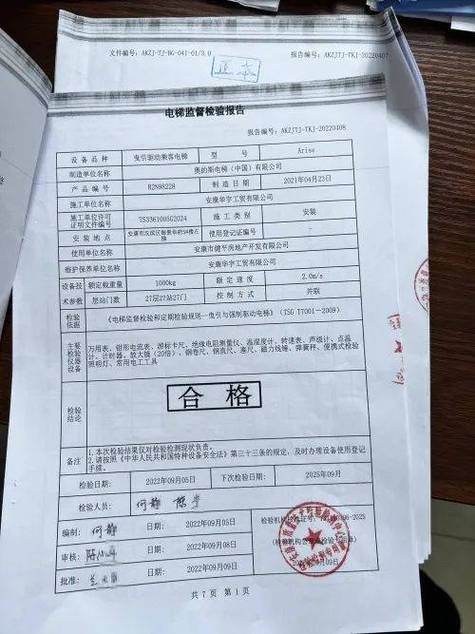 文件编号：AKZJ-TJ-BG-041-01/3.0 报告编号：AKZJTJ-TKJ-20220407
正本
电梯监督检验报告
报告编号：AKZJTJ-TKJ-20220408
设备品种 曳引驱动乘客电梯 型号 Arise
制造单位名称 奥的斯电梯（中国）有限公司
产品编号 R2N98228 制造日期 2021年04月23日
施工单位名称 安康华宇工贸有限公司
施工单位许可证明文件编号 TS3361005G2024 施工类别 安装
安装地点 使用登记证编号 -
使用单位名称 安康市健平房地产开发有限公司
维护保养单位名称 安康华宇工贸有限公司
设备技术参数 额定载重量 1000kg 额定速度 2.0m/s
层站门数 27层27站27门 控制方式 并联
检验依据 《电梯监督检验和定期检验规则—曳引与强制驱动电梯》（TSG T7001-2009）
主要检验仪器设备 万用表、钳形电流表、游标卡尺、绝缘电阻测量仪、温湿度计、转速表、声级计、点温
计、计时器、放大镜（20倍）、钢卷尺、钢直尺、塞尺、磁力线锤、弹簧秤、便携式检验
照明灯、常用电工工具
检验结论 合格
备注 1.本次检验结果仅对检验检测现状负责。
2.请按照《中华人民共和国特种设备安全法》第三十三条的规定，及时办理设备使用登记
手续。
检验日期 2022年09月05日 下次检验日期 2025年09月
检验人员： 何静
编制： 何静 日期： 2022年09月05日
审核： 日期： 2022年09月08日
批准： 日期： 2022年09月09日
共 7 页 第 1 页